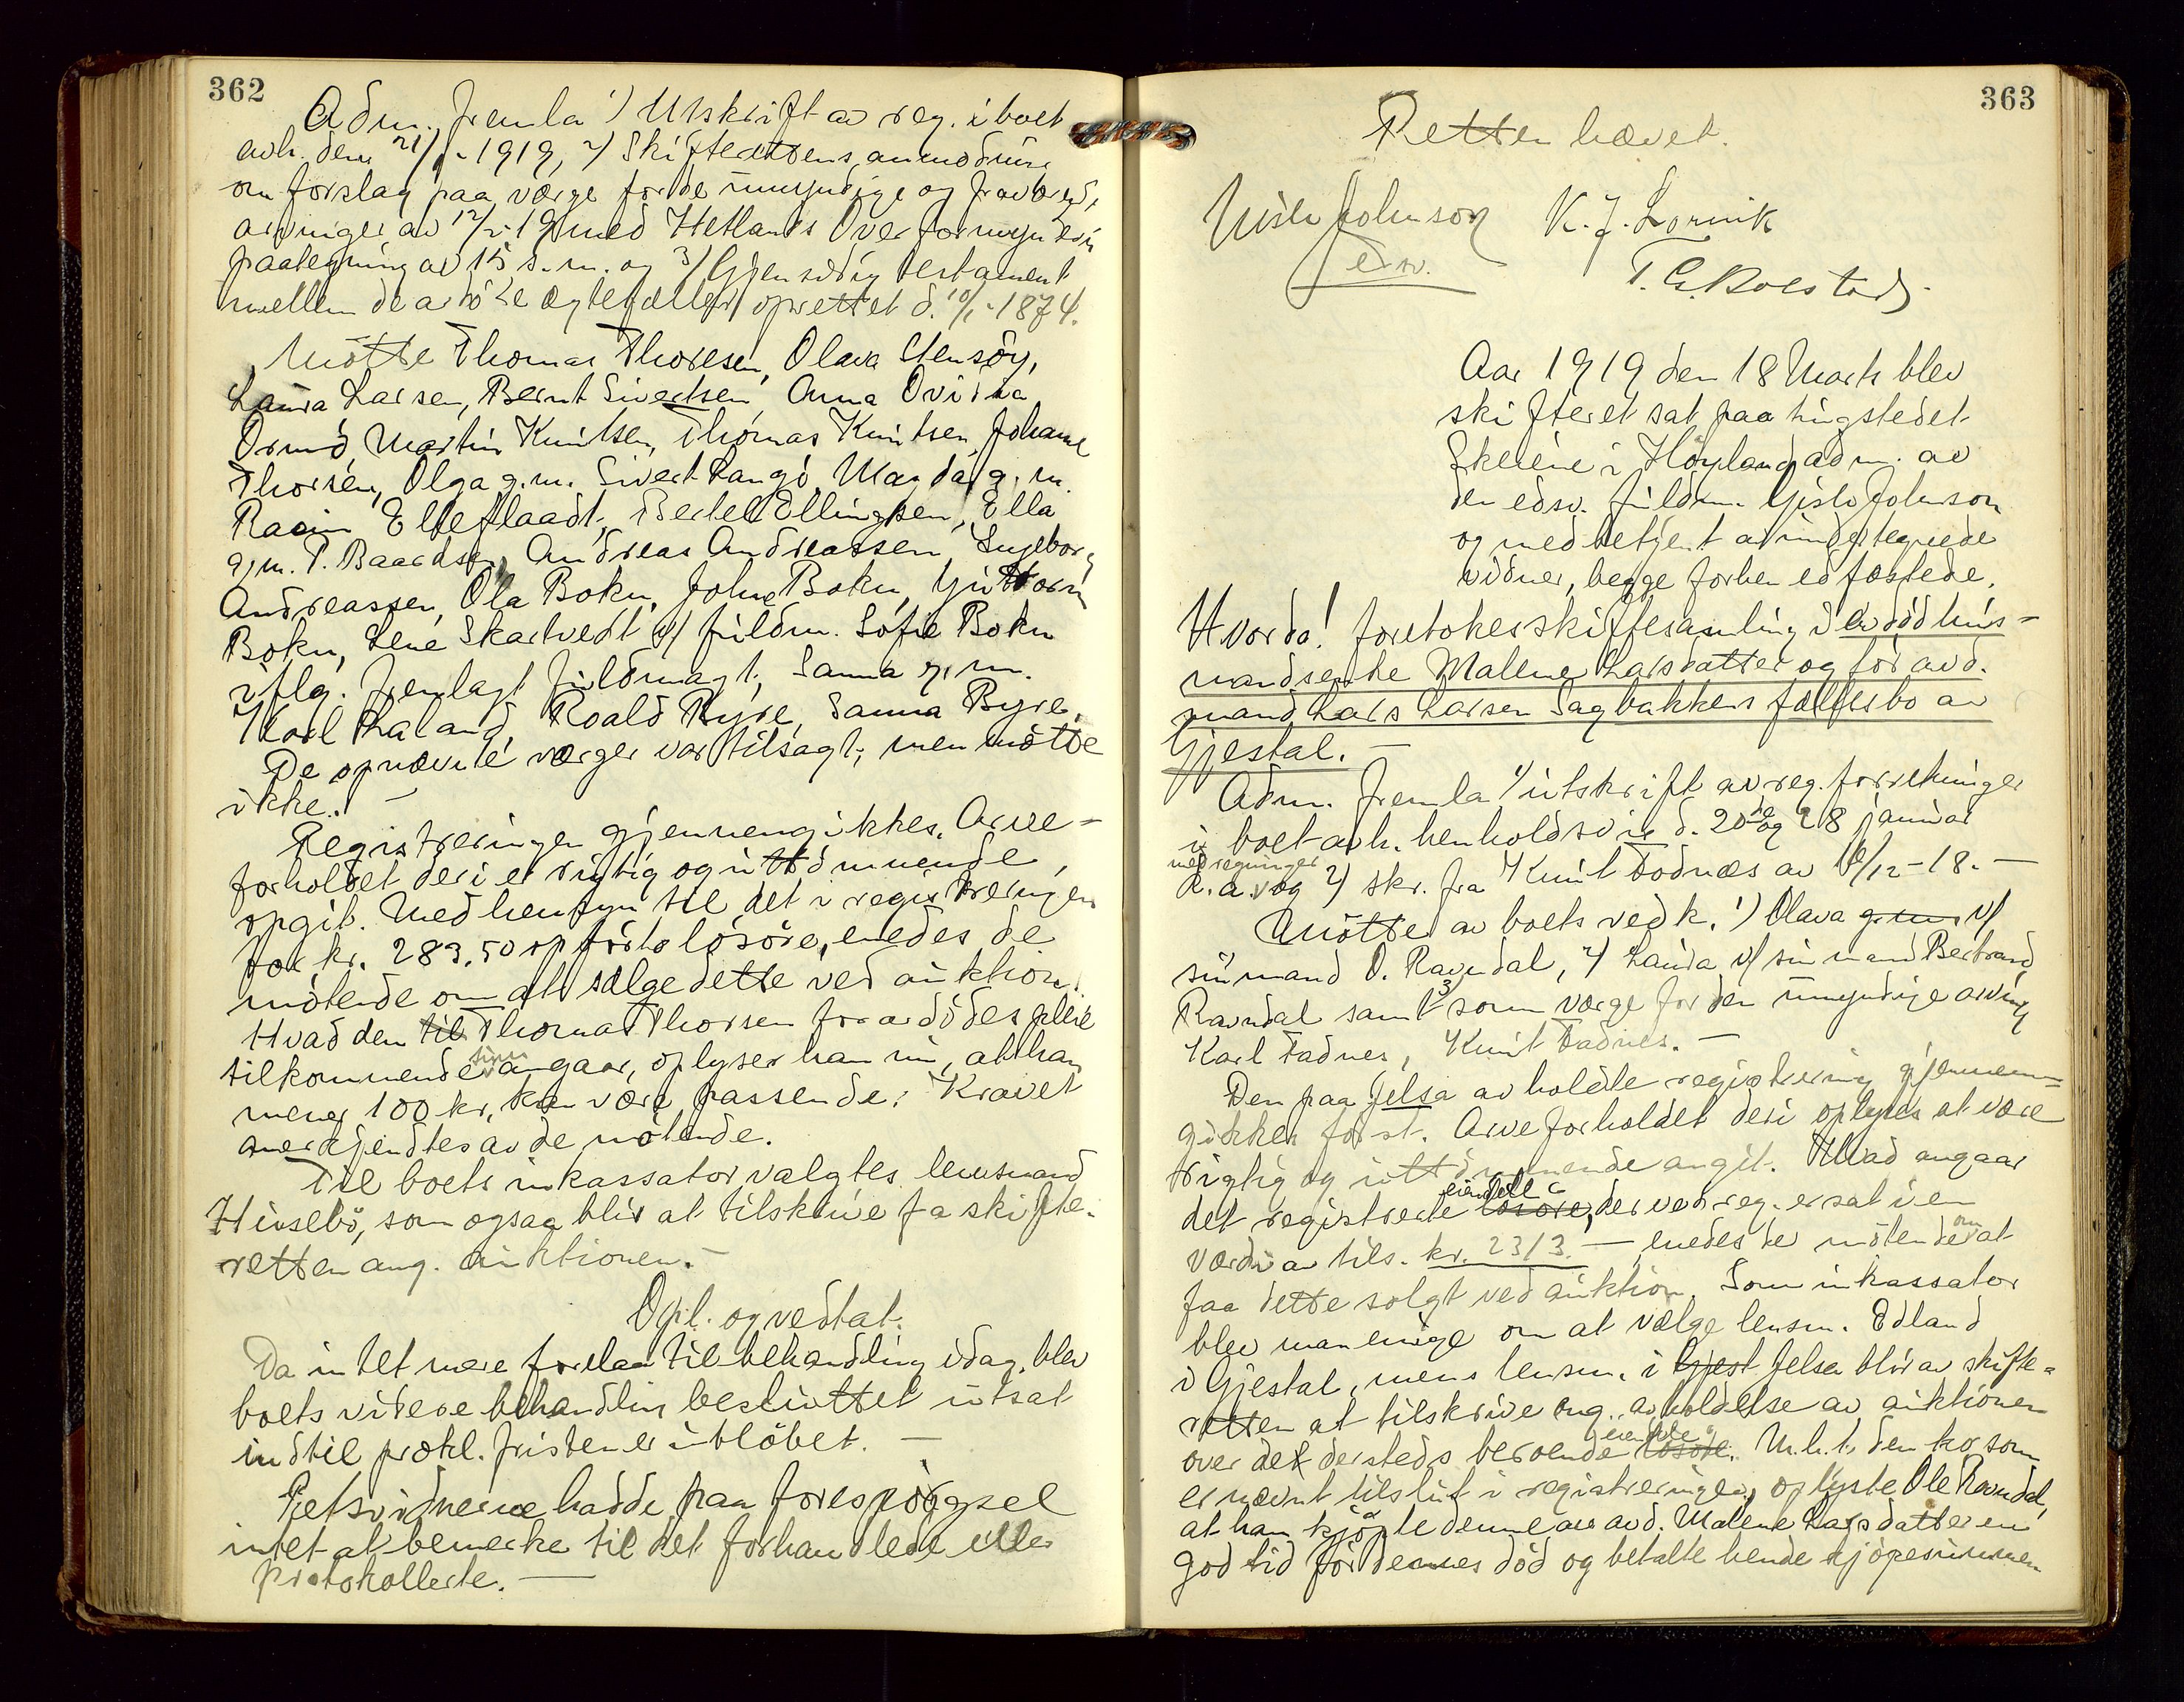 362
Adm. fremla 1) Utskrift av reg. i boet
avh. den 21/1-1919, 2) Skifterettens anmodning
om forslag paa værge for de umyndige og fraværende
arvinger av 12/2-19 med Hetlands Overformynderis
paategning av 15 s.m. og 3) Gjensidig testament
mellem de avdöde egtefæller oprettet d. 10/1-1874.
Mötte Thomas Thoresen, Olava Stensöy,
Laura Larsen, Bernt Sivertsen, Anna Ovidia
Ormö, Martin Knutsen, Thomas Knutsen, Johanne
Thorsen, Olga g.m. Sivert Langö, Magda g.m.
Rasm Elleflaadt, Bertel Ellingsen, Ella
g.m. P. Baardsen, Andreas Andreassen, Ingeborg
Andreassen, Ola Bokn, John Bokn, Guttorm
Bokn, Lene Skartvedt v/ fuldm. Sofie Bokn
iflg. fremlagt fuldmagt, Sanna g.m.
Karl Raland, Roald Byre, Sanna Byre.
De opnævnte værger var tilsagt, men mötte
ikke. —
Registreringen gjennemgikkes. Arve-
forholdet deri er rigtig og uttömmende
opgit. Med hensyn til det i registreringen
for kr. 283,50 opförte lösöre, enedes de
mötende om at sælge dette ved auktion.
Hvad den til Thomas Thorsen for avdödes pleie
tilkommende sum angaar, oplyser han nu, at han
mener 100 kr. kan være passende. Kravet
anerkjendtes av de mötende.
Til boets inkassator valgtes lensmand
Hinsebö, som ogsaa blir at tilskrive fra skifte-
retten ang. auktionen. —
Opl. og vedtat.
Da intet mere forelaa til behandling idag, blev
boets videre behandling besluttet utsat
indtil prokl. fristen er utlöbet. —
Retsvidnerne hadde paa forespörgsel
intet at bemerke til det forhandlede eller
protokollerte. —
363
Retten hævet.
Gisle Johnson K. J. Lornik
edsv. T. G. Bolstad
Aar 1919 den 18 Marts blev
skifteret sat paa tingstedet
Skeiene i Höyland adm. av
den edsv. fuldm. Gisle Johnson
og med betjent av undertegnede
vidner, begge forhen edfæstede,
Hvorda! foretokes skiftesamling i avdöd hus-
mandsenke Malene Larsdatter og för avd.
mand Lars Larsen Sagbakkens fællesbo av
Gjestal. —
Adm. fremla 1) utskrift av reg. forretninger
i boet avh. henholdsvis d. 20de og 28 januar
med regninger
d. a. og 2) skr. fra Knut Fodnæs av 6/12-18. —
Mötte av boets vedk. 1) Olava g.m. v/
sin mand O. Ravndal, 2) Lauda v/ sin mand Bertrand
Ravndal samt 3) som værge for den umyndige arving
Karl Fadnes, Knut Fadnes. —
Den paa Jelsa avholdte registrering gjennem-
gikkes först. Arveforholdet deri oplyses at være
rigtig og uttömmende angit. Hvad angaar
eiendele
det registrerte lösöre, der ved reg. er sat i en
værdi av tils. kr. 2313. — enedes de mötende om at
faa dette solgt ved auktion. Som inkassator
blev man enige om at vælge lensm. Edland
i Gjestal, mens lensm. i Gjest Jelsa blir av skifte-
retten at tilskrive ang. avholdelse av auktionen
eiendele
over det dersteds beroende lösöre. M.h.t. den ko, som
er nævnt tilslut i registreringen, oplyste Ole Ravndal,
at han kjöpte denne av avd. Malene Larsdatter en
god tid för dennes död og betalte hende kjöpesummen